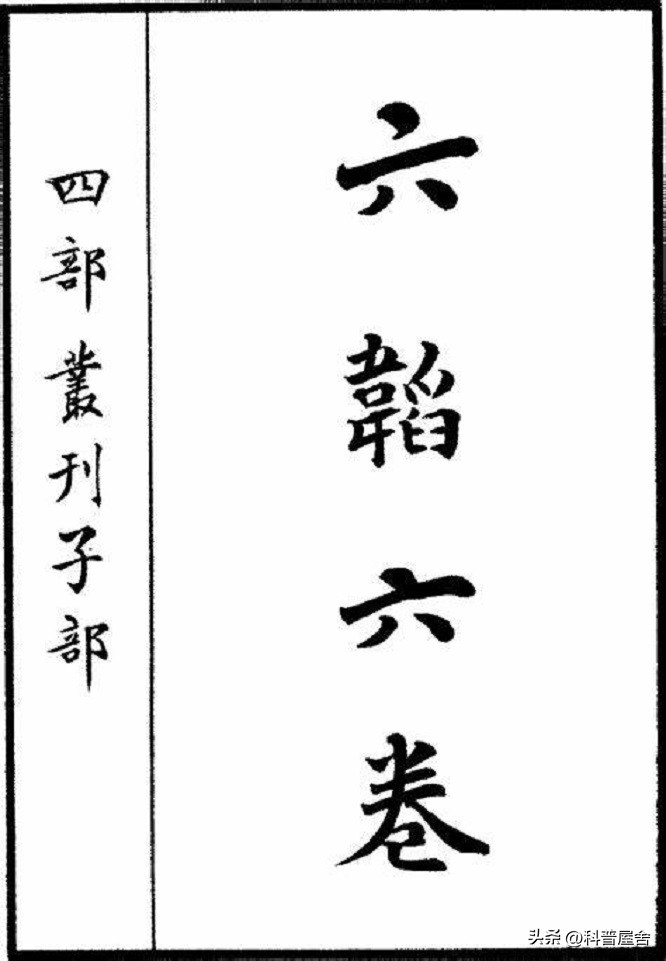 六韜六卷
四部叢刊子部
头条 @科普屋舍